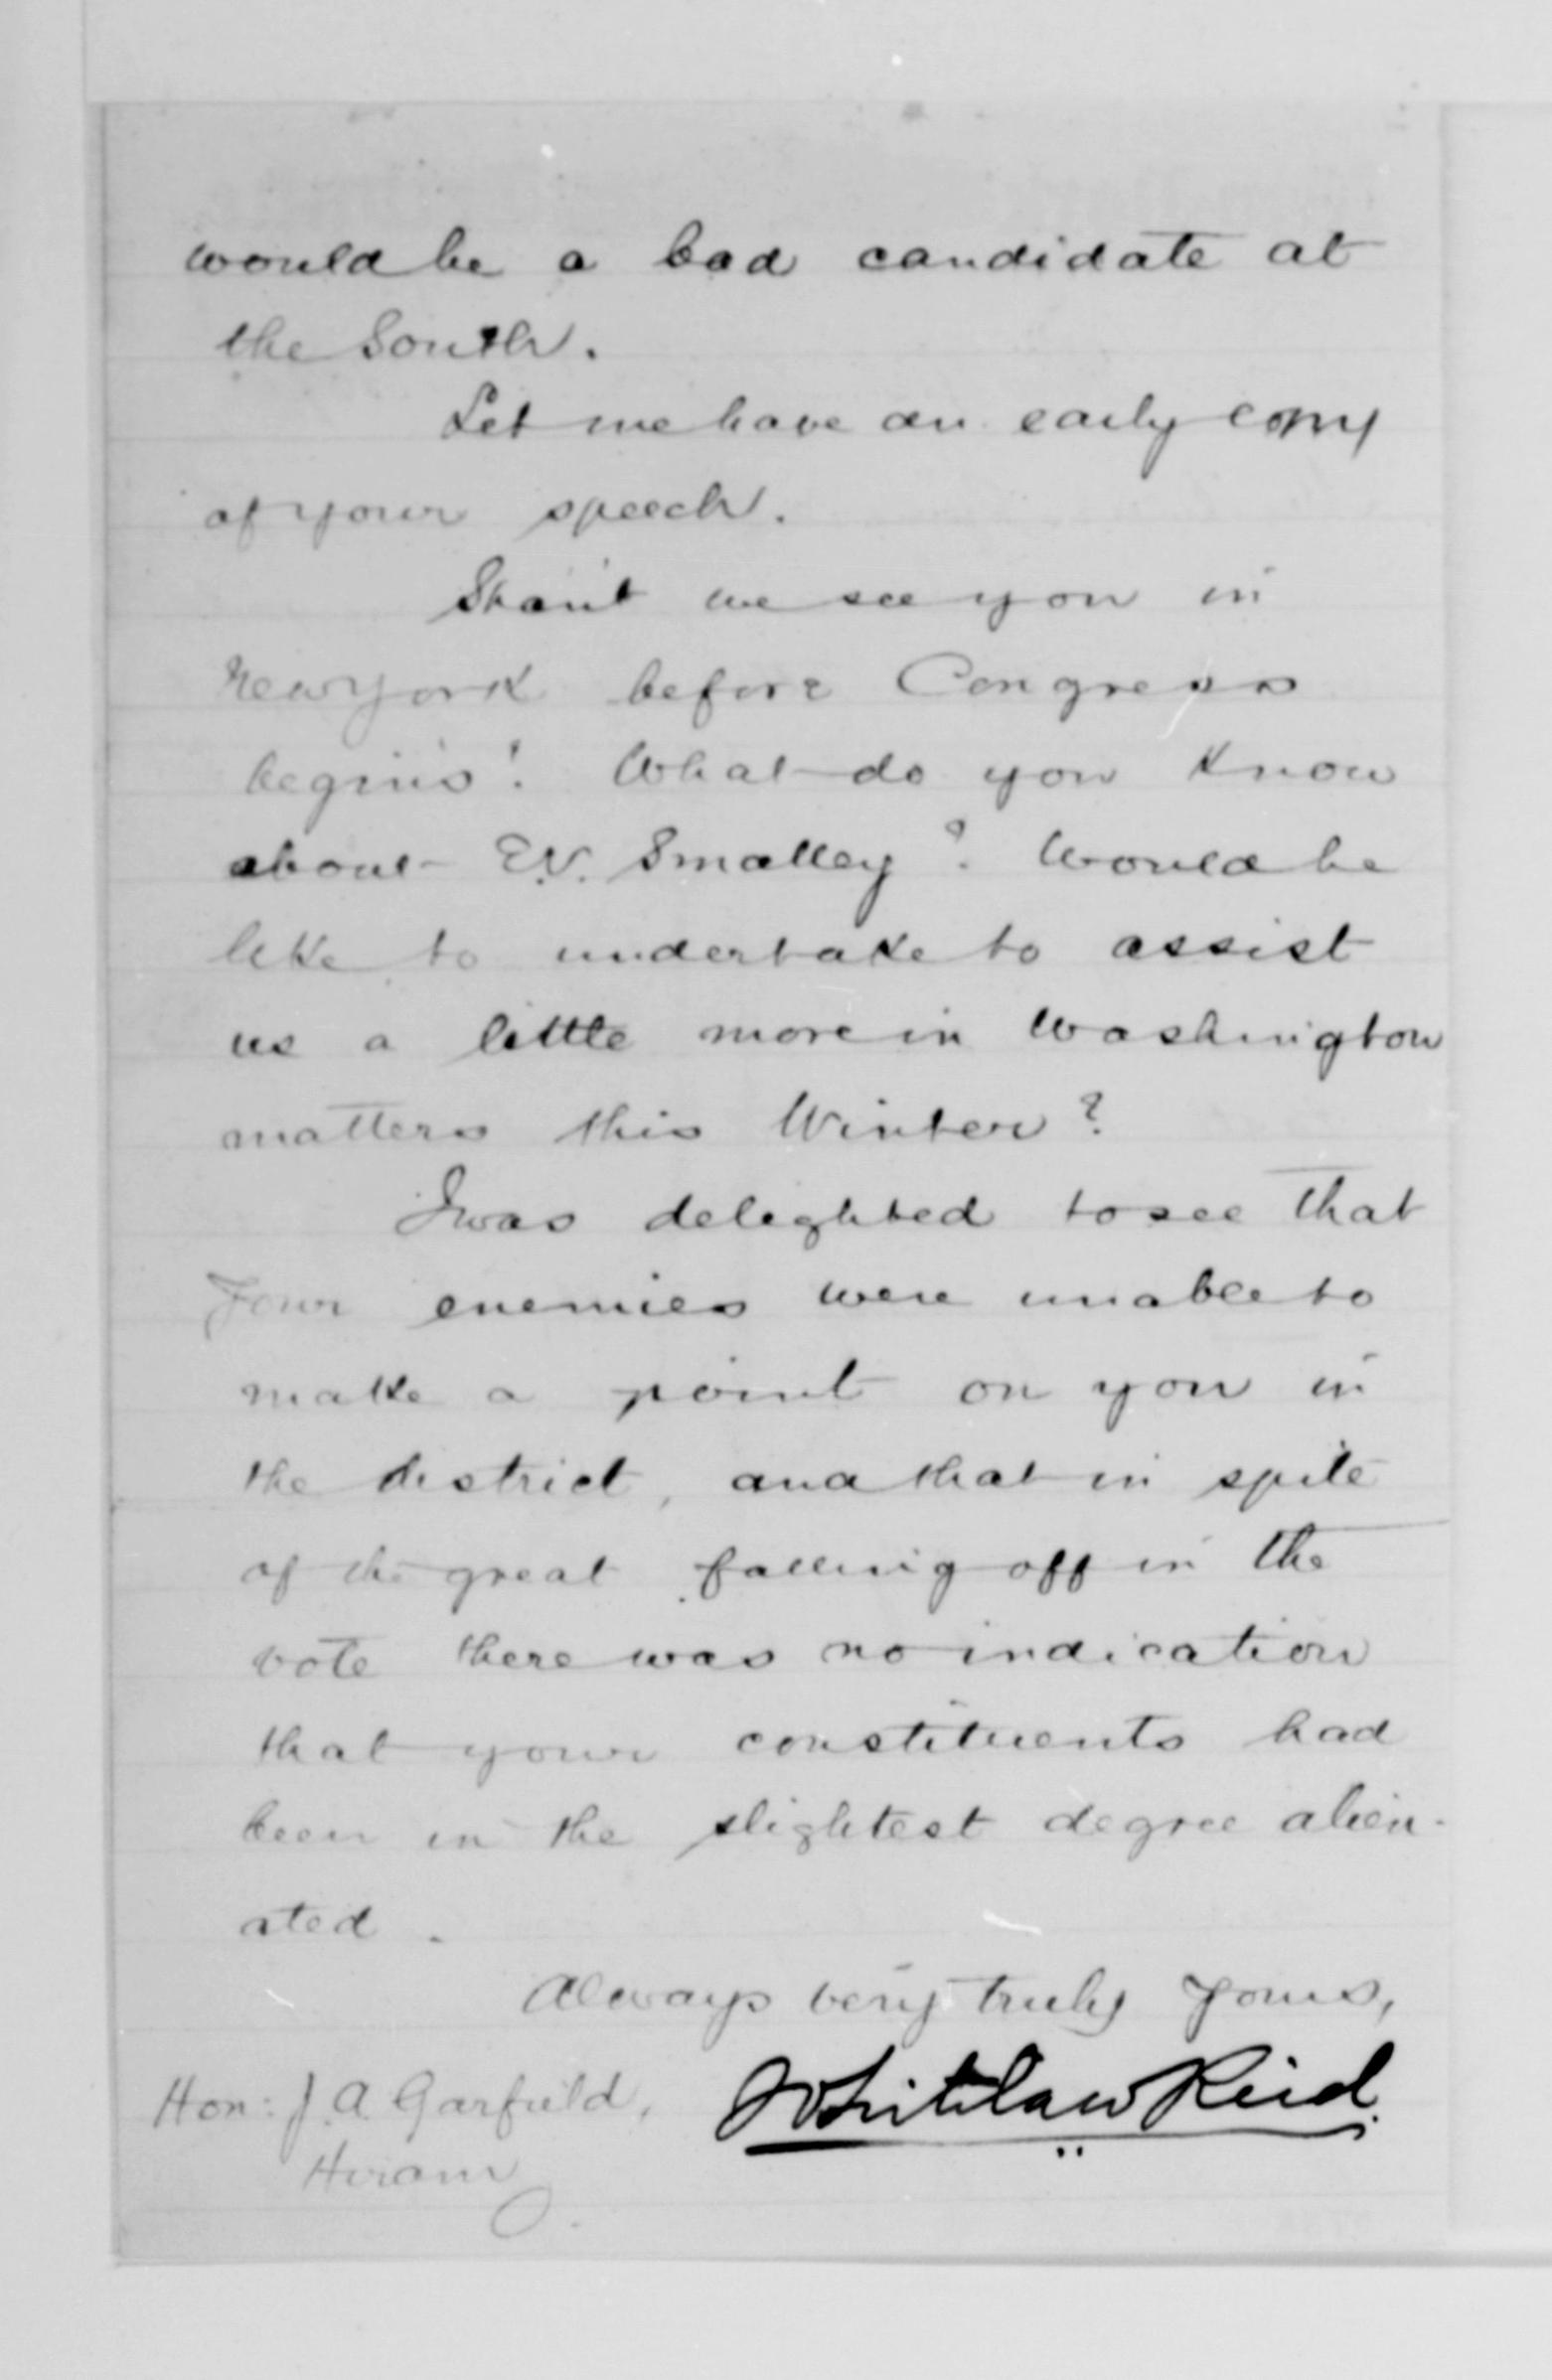 would be a bad candidate at
the South.
Let me have an early copy
of your speech.
Shan't we see you in
New York before Congress
begins? What do you know
about E.V. Smalley? Would he
like to undertake to assist
us a little more in Washington
matters this Winter?
I was delighted to see that
your enemies were unable to
make a point on you in
the district, and that in spite
of the great falling off in the
vote there was no indication
that your constituents had
been in the slightest degree alien-
ated.
Always very truly yours,
Whitelaw Reid.
Hon: J. A. Garfield,
Hiram